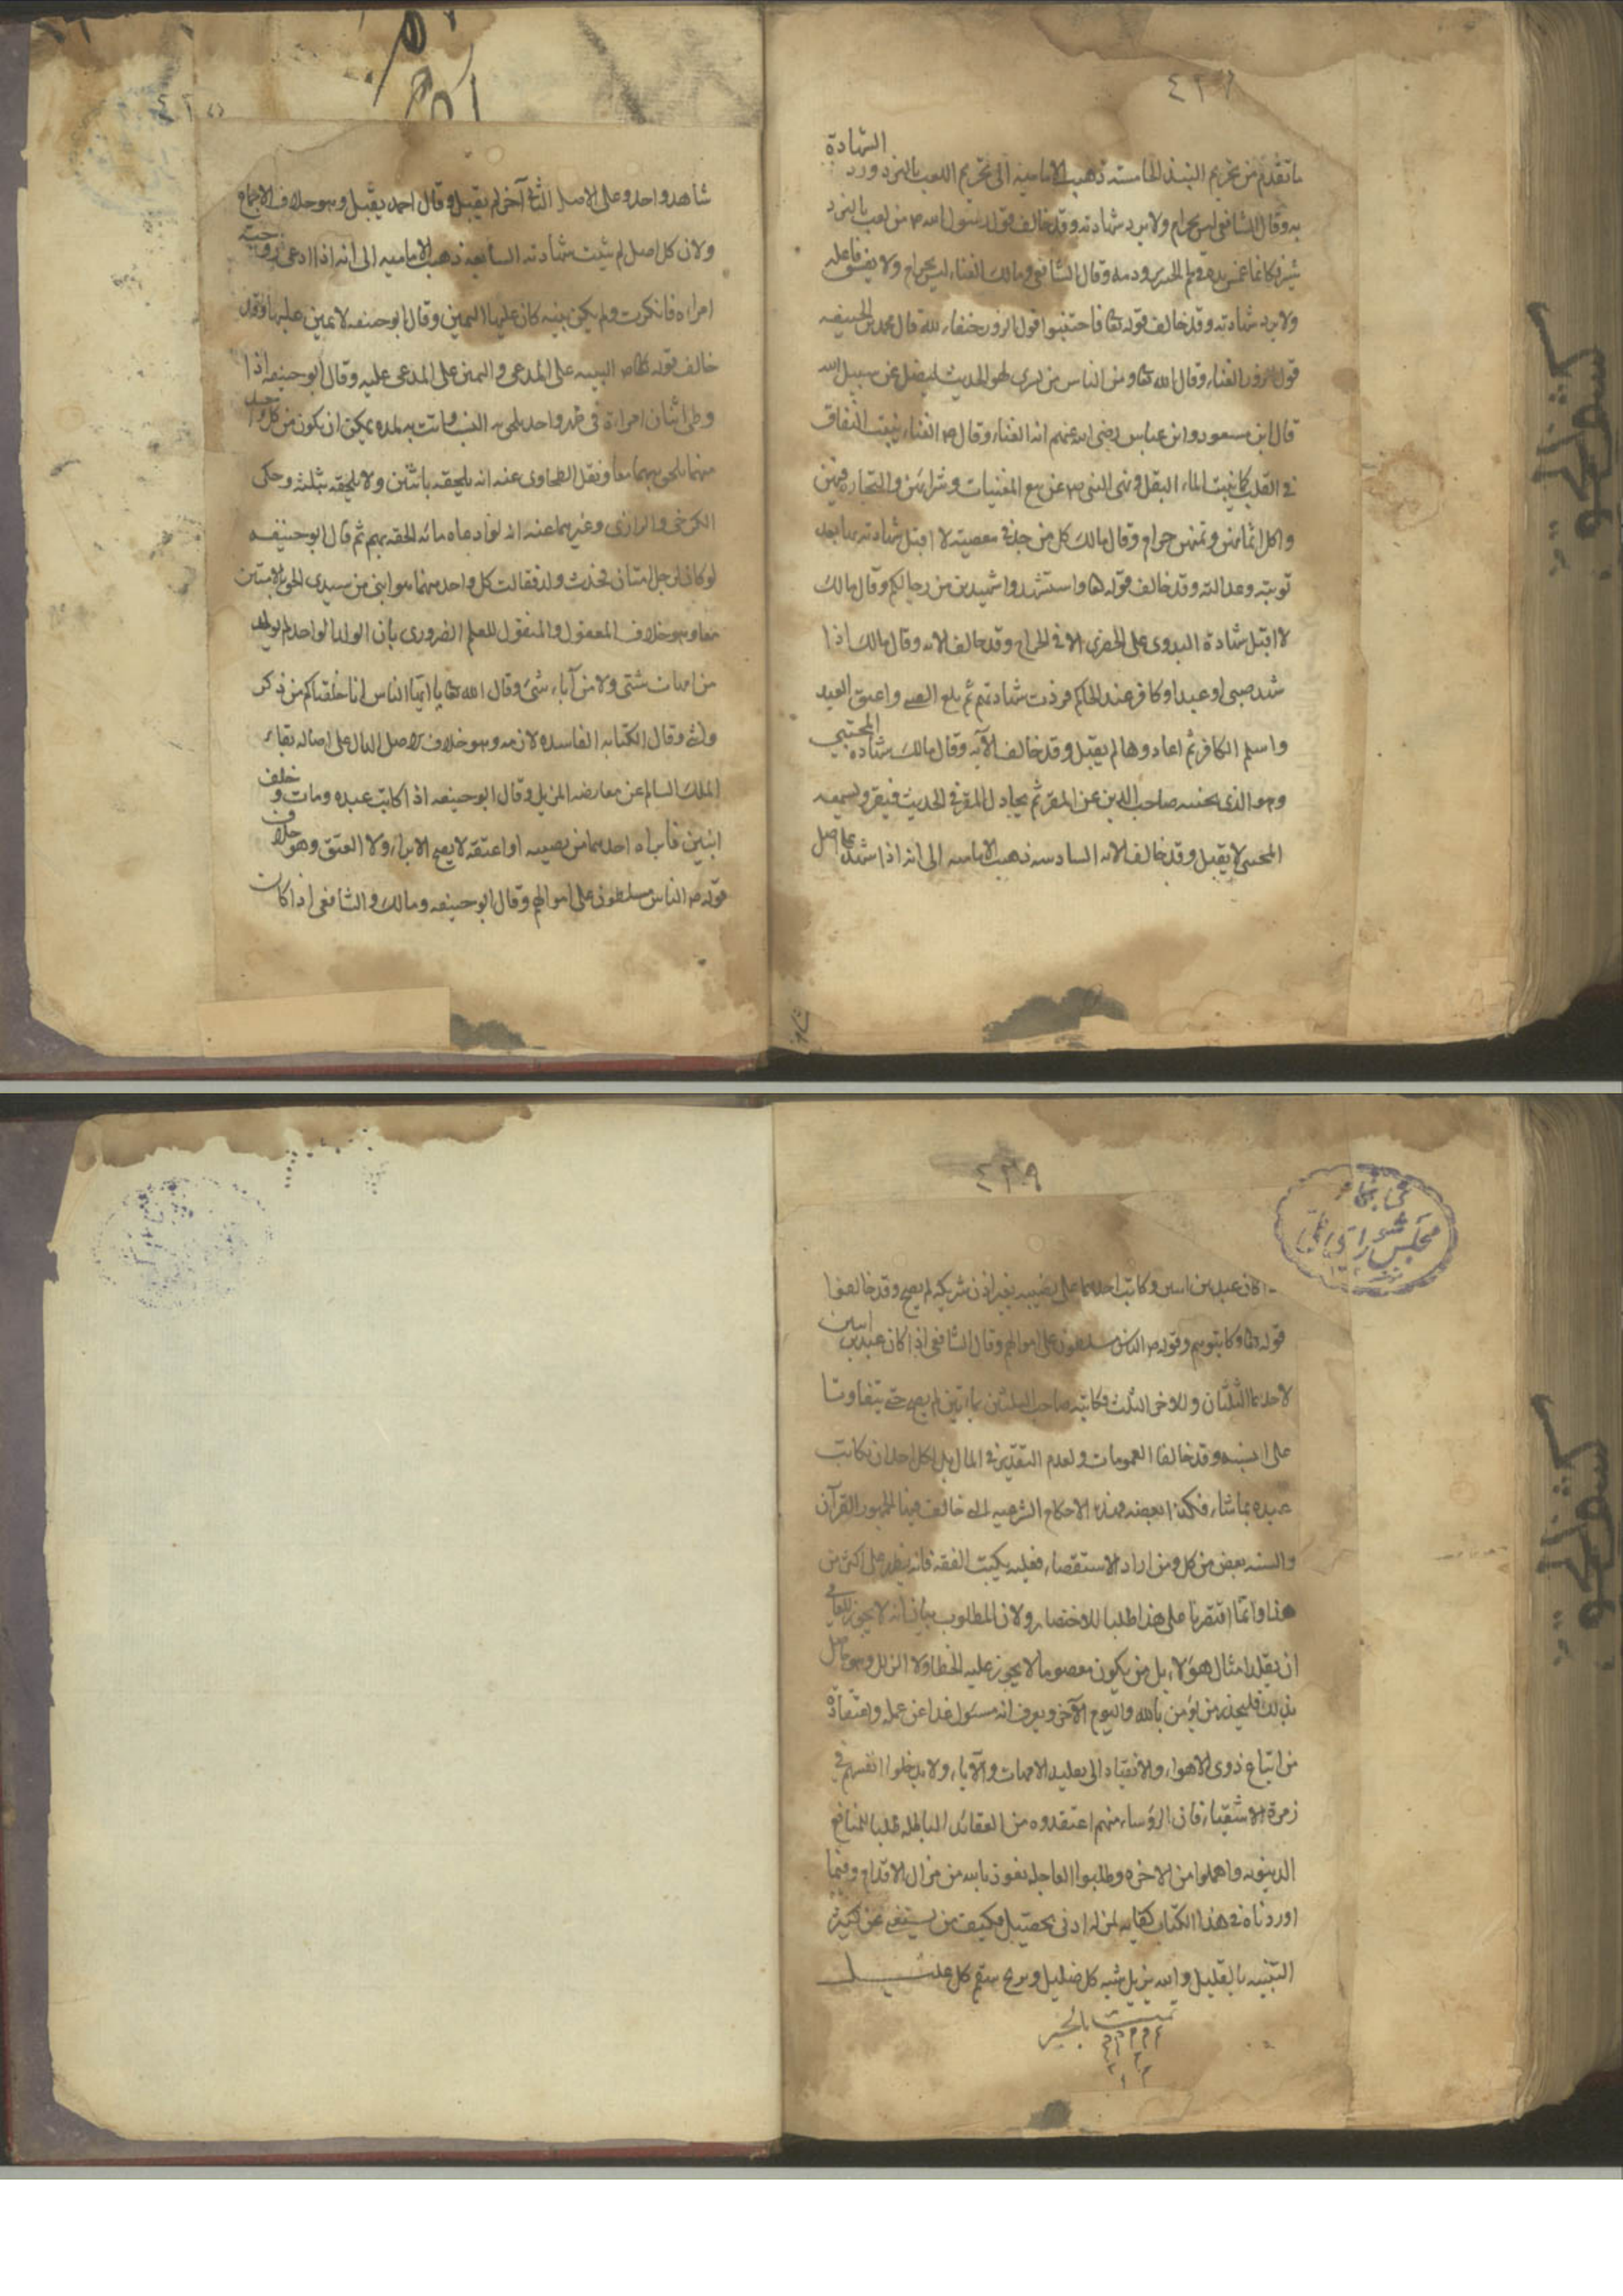 ٤٣٧
الشهادة
ما تقدم من تحريم النبيذ الخامسة ذهبت الامامية الى تحريم اللعب بالنرد ورد
به وقال الشافعي ليس بحرام ولا يرد شهادته وقد خالف قول رسول الله ص من لعب بالنرد
شير فكانما غمس يده في لحم الخنزير ودمه وقال الشافعي ومالك الغناء ليس بحرام ولا يفسق فاعله
ولا يرد شهادته وقد خالف قوله تعا فاجتنبوا قول الزور حنفاء لله قال محمد بن الحنيفه
قول الزور الغناء وقال الله تعا ومن الناس من يشري لهو الحديث ليضل عن سبيل الله
قال ابن مسعود وابن عباس رضي الله عنهم انه الغناء وقال ص الغناء ينبت النفاق
في القلب كما ينبت الماء البقل ونهى النبي ص عن بيع المغنيات وشرائهن والتجارة فيهن
واكل اثمانهن وثمنهن حرام وقال مالك كل من جلد في معصية لا اقبل شهادته بها بعد
توبته وعدالته وقد خالف قوله تعا واستشهدوا شهيدين من رجالكم وقال مالك
لا اقبل شهادة البدوي على الحضري الا في الجراح وقد خالف الاية وقال مالك اذا
شهد صبي او عبد او كافر عند الحاكم فردت شهادتهم ثم بلغ الصبي واعتق العبد
واسلم الكافر ثم اعادوها لم يقبل وقد خالف الآية وقال مالك شهادة المختبي
وهو الذي يخبيه صاحب الدين عن المقر ثم يجادل المقر في الحديث فيقر ويسمعه
المختبي لا يقبل وقد خالف الاية السادسة ذهبت الامامية الى انه اذا شهد على اصل
شاهد واحد وعلى الاصل الثاني آخر لم يقبل وقال احمد يقبل وهو خلاف الاجماع
ولان كل اصل لم يثبت شهادته السابعة ذهبت الامامية الى انه اذا ادعى زوجية
امراه فانكرت ولم يكن بينه كان عليها اليمين وقال ابو حنيفه لا يمين عليها وقد
خالف قوله ص البينه على المدعي واليمين على المدعى عليه وقال ابو حنيفه اذا
وطى اثنان امراة في طهر واحد يلحق به النسب واتت به لمده يمكن ان يكون من كل واحد
منهما يلحق بهما معا ونقل الطحاوي عنه انه يلحقه باثنين ولا يلحقه بثلثه وحكى
الكرخي والرازي وغيرهما عنه انه لو ادعاه مائه الحقه بهم ثم قال ابو حنيفه
لو كان لرجل امتان فحدث ولد فقالت كل واحد منهما هو ابني من سيدي الحق بالامتين
معا وهو خلاف المعقول والمنقول للعلم الضروري بان الولد الواحد لم يولد
من امهات شتى ولا من آباء شتى وقال الله تعا يا ايها الناس انا خلقناكم من ذكر
وانثى وقال الكتابه الفاسده لازمه وهو خلاف الاصل الدال على اصاله بقاء
الملك السالم عن معارضه المزيل وقال ابو حنيفه اذا كاتب عبده ومات وخلف
ابنين فابراه احدهما من نصيبه او اعتقه لا يصح الابراء ولا العتق وهو خلاف
قوله ص الناس مسلطون على اموالهم وقال ابو حنيفه ومالك والشافعي اذا كان
٤٣٩
كتابخانه
مجلس شوراي ملي
كان عبد بين اثنين وكاتب احدهما على نصيبه بغير اذن شريكه لم يصح وقد خالفوا
قوله تعا وكاتبوهم وقوله ص الناس مسلطون على اموالهم وقال الشافعي اذا كان عبد بين اثنين
لاحدهما الثلثان وللاخر الثلث فكاتبه صاحب الثلثين بمائتين لم يصح حتى يتفاوتا
على النسبه وقد خالفا العمومات ولعدم التقدير في المال بل لكل احد ان يكاتب
عبده بما شاء فكهذا بعضه وهذه الاحكام الشرعيه التي خالفت فيها الجمهور القرآن
والسنه بعض من كل ومن اراد الاستقصاء فعليه بكتب الفقه فانه يظهر على اكثر من
هذا وانما اقتصرنا على هذا طلبا للاختصار ولان المطلوب بيان انه لا يجوز للعامي
ان يقلد امثال هؤلاء بل من يكون معصوما لا يجوز عليه الخطا ولا الزلل وهو حاصل
بذلك فليحذر من يؤمن بالله واليوم الآخر ويعرف انه مسؤل غدا عن عمله واعتقاده
من اتباع ذوي الاهواء والانقياد الى تقليد الامهات والآباء ولا يدخلوا انفسهم في
زمرة الاشقياء فان الرؤساء منهم اعتقدوه من العقائد الباطله طلبا للمنافع
الدنيويه واهملوا من الاخره وطلبوا العاجل نعوذ بالله من مزال الاقدام وفيما
اوردناه في هذا الكتاب كفاية لمن له ادنى تحصيل فكيف من يستغني عن كثير
التنبيه بالقليل والله يزيل شبه كل ضليل ويبرئ سقم كل عليل
تمت بالخير